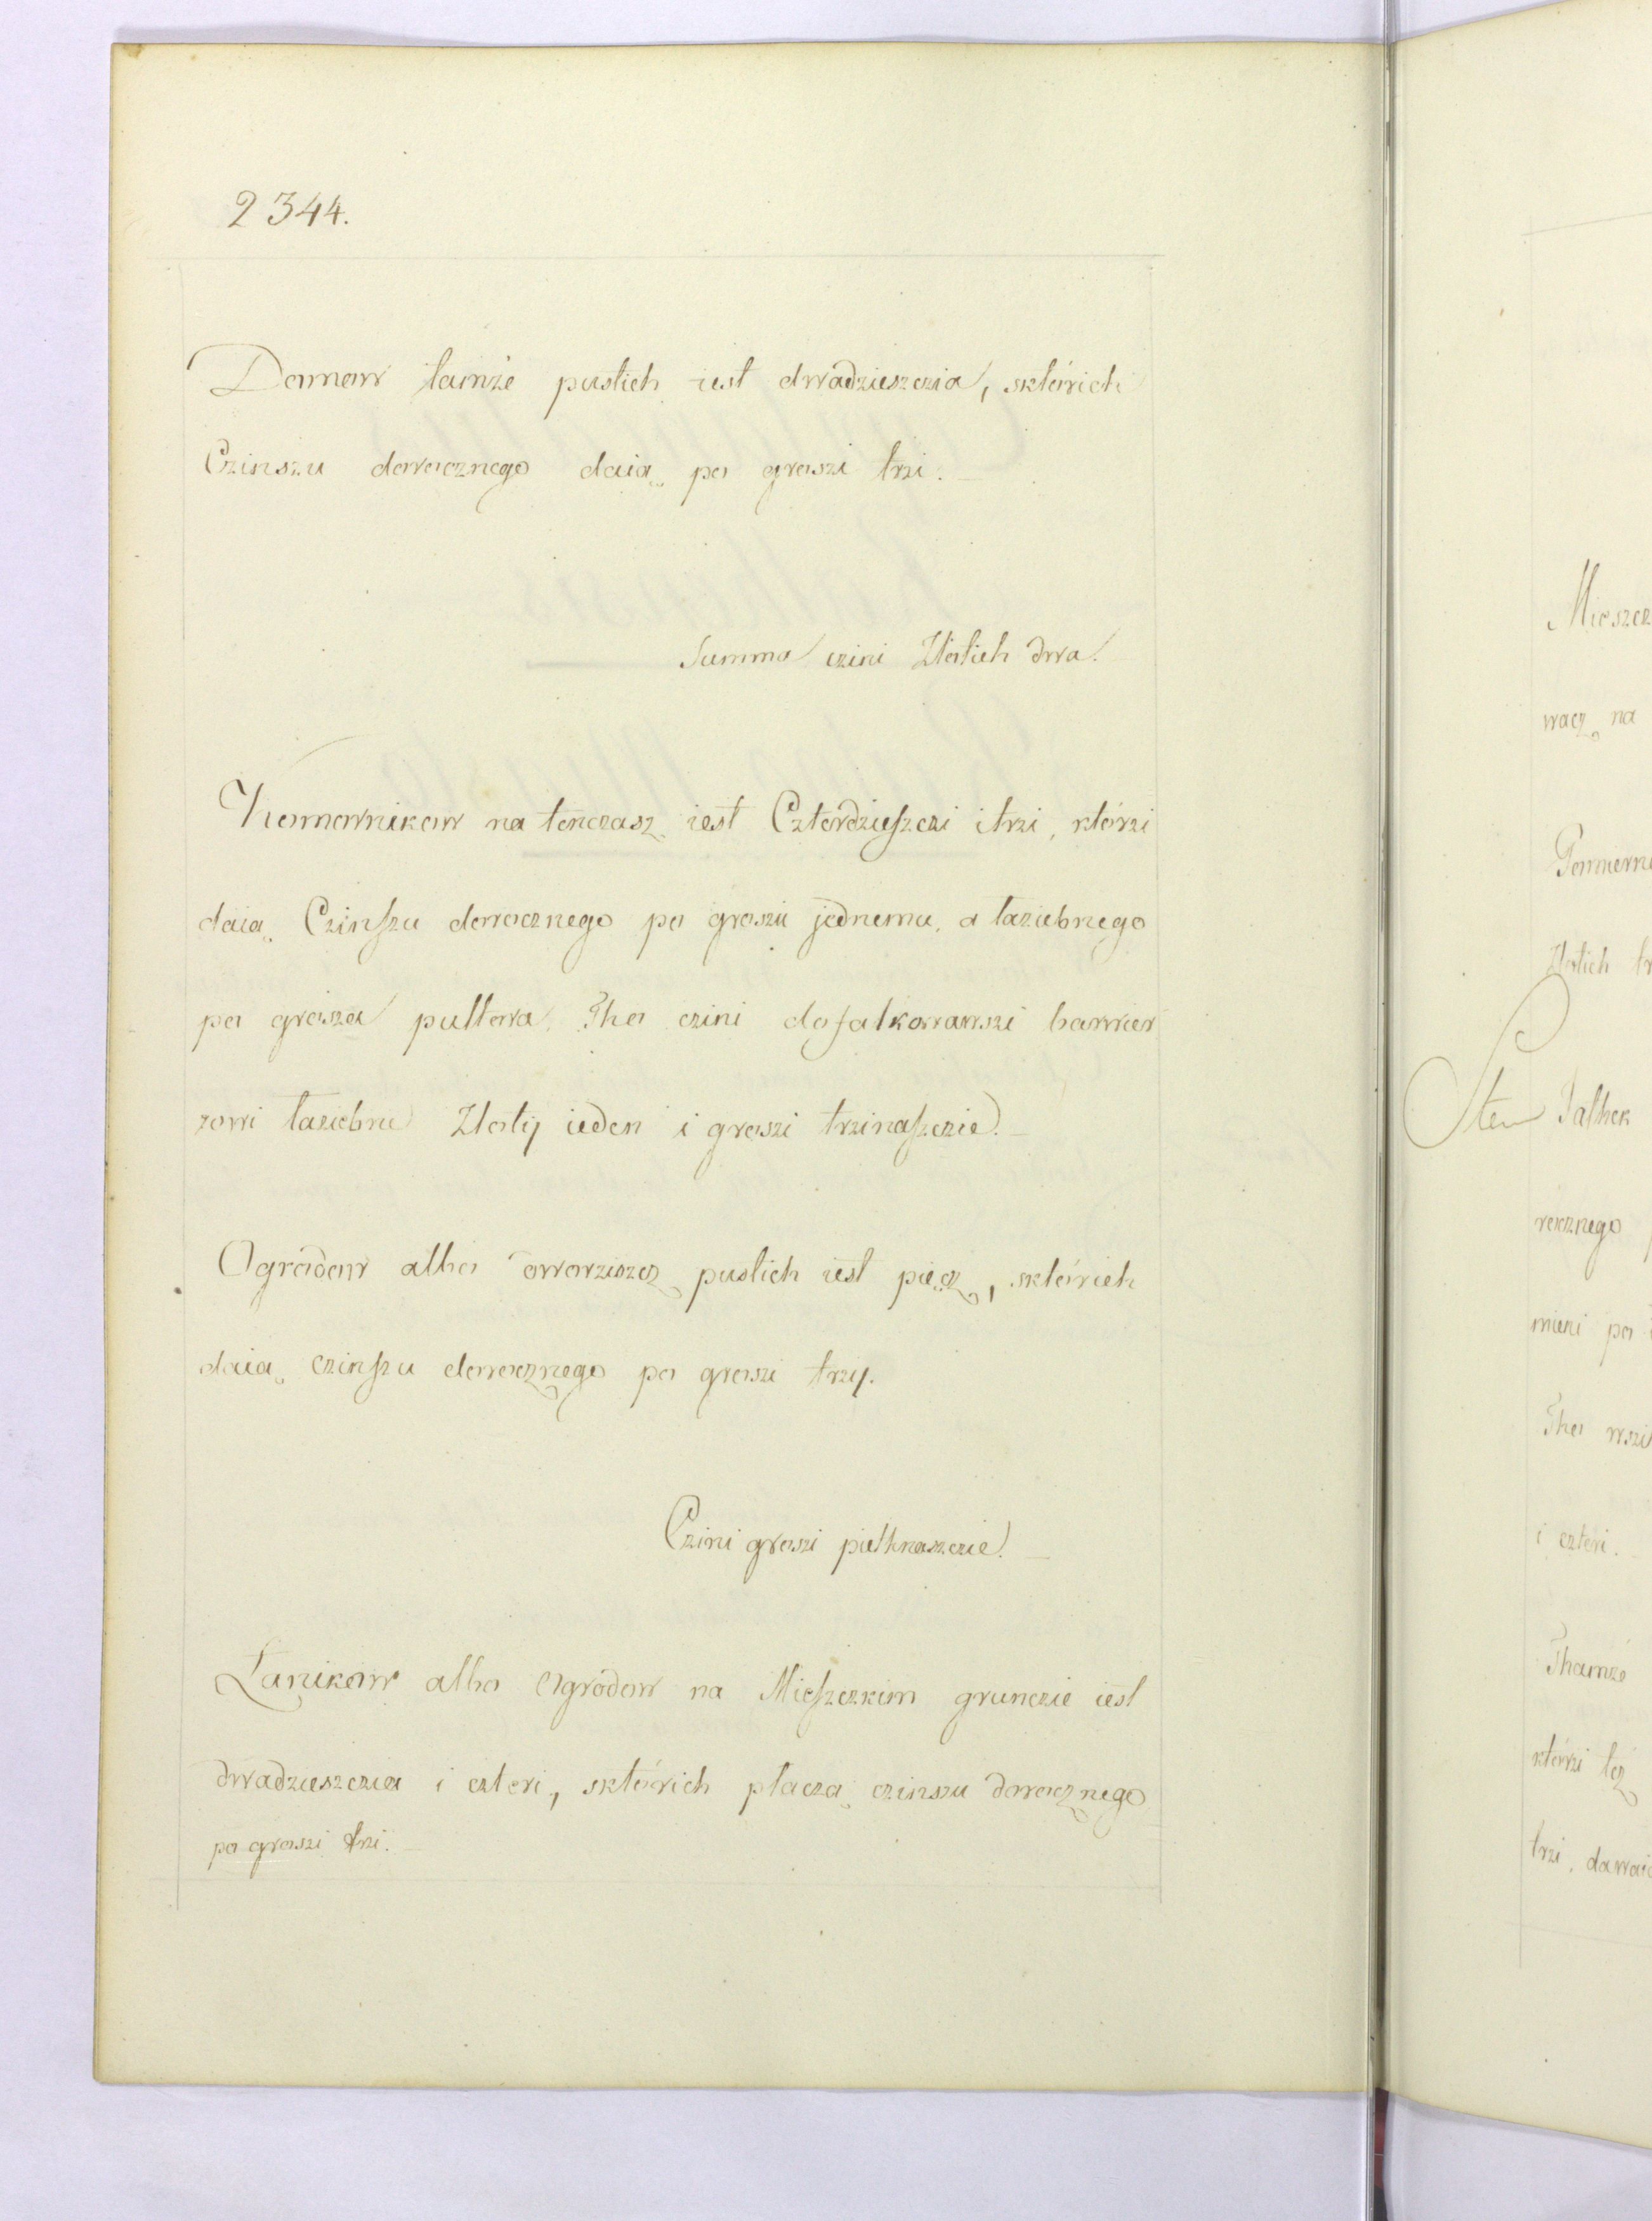 2344.
Domow tamże pustich iest dwadzieszczia, sktórich
Czinszu dorocznego daią po groszi trzi.
Summa czini Złotich dwa.
Komornikow na tenczasz iest Czterdzieszczi i trzi, którzi
daią Czinszu dorocznego po groszu jednemu, a łaziebnego
po grosza pultora, Tho czini dofalkowawszi barwier
zowi łaziebne Złotij ieden i groszi trzinaszczie.
Ogrodow albo Dworziszcz pustich iest pięcz, sktórich
daią czinszu dorocznego po groszi trzij.
Czini groszi piethnaszczie.
Łanikow albo Ogródow na Mieszczkim grunczie iest
dwadzieszczia i czteri, sktórich płaczą czinszu dorocznego
po groszi trzi.
wacz na
Złotich
Sten Jathek
rocznego
mieni po
Tho
i czteri.
Thamże
którzi też
trzi,